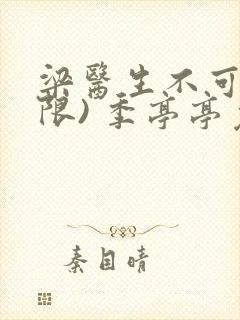 梁醫生不可
限）季亭亭
秦目晴